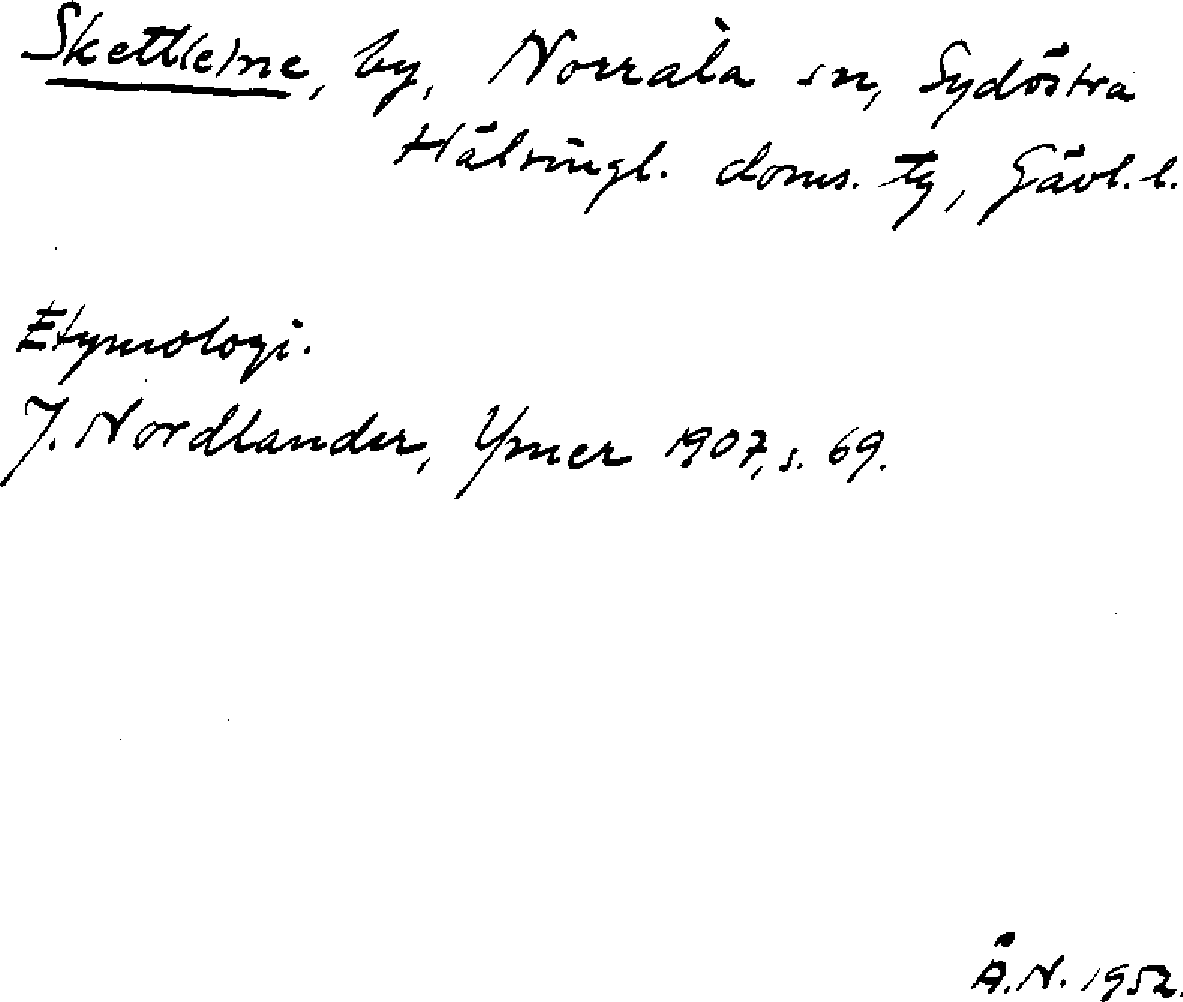 Skett(e)ne, by, Norrala sn, Sydöstra
Hälsingl. doms. tg, Gävl. l.
Etymologi.
J. Nordlander, Ymer 1907, s. 69.
Å.N. 1952.